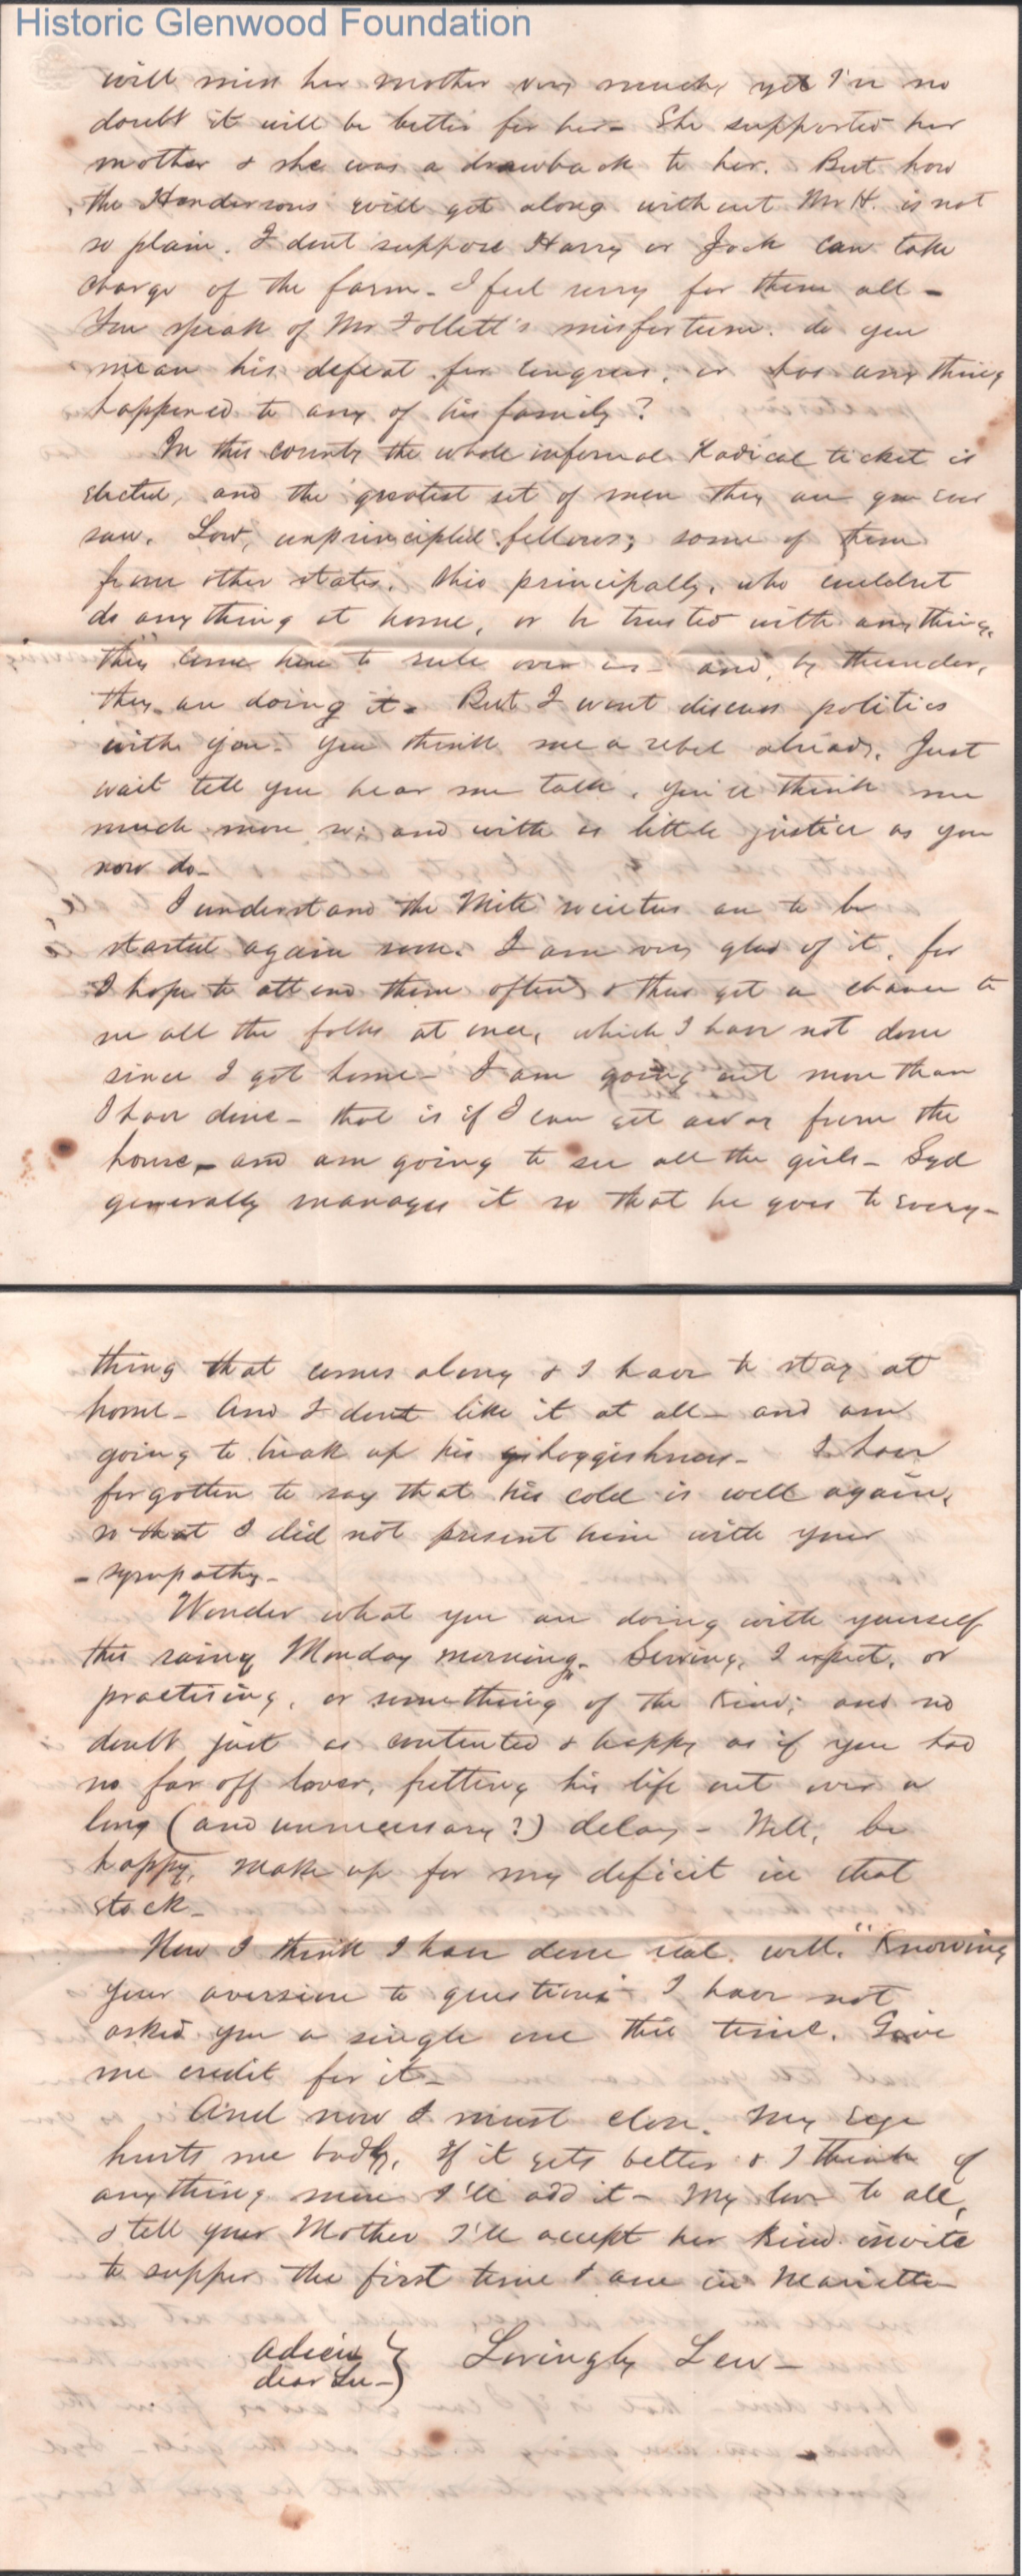 Historic Glenwood Foundation
will miss her mother very much, yet I've no
doubt it will be better for her - She supported her
mother & she was a drawback to her. But how
the Hendersons will get along without Mr H. is not
so plain. I dont suppose Harry or Jock can take
charge of the farm - I feel sorry for them all -
You speak of Mr Follett's misfortune. do you
mean his defeat for Congress, or has any thing
happened to any of his family?
In this county the whole infernal Radical ticket is
elected, and the greatest set of men they are you ever
saw. Low, unprincipled fellows; some of them
from other states, Ohio principally, who couldnt
do anything at home, or be trusted with anything,
they come here to rule over us - and, by thunder,
they are doing it. But I wont discuss politics
with you - you think me a rebel already. Just
wait till you hear me talk, you'll think me
much more so; and with as little justice as you
now do -
I understand the Mite societies are to be
started again soon. I am very glad of it, for
I hope to attend them often, & thus get a chance to
see all the folks at once, which I have not done
since I got home - I am going out more than
I have done - that is if I can get away from the
house, - and am going to see all the girls - Syd
generally manages it so that he goes to every-
thing that comes along & I have to stay at
home - And I dont like it at all - and am
going to break up his hoggishness - I have
forgotten to say that his cold is well again,
so that I did not present him with your
- sympathy -
Wonder what you are doing with yourself
this rainy Monday morning - Sewing, I expect, or
practising, or something of the kind; and no
doubt just as contented & happy as if you had
no far off lover, fretting his life out over a
long (and unnecessary?) delay - Well, be
happy, make up for my deficit in that
stock -
Now I think I have done real well. "Knowing
your aversion to questions" I have not
asked you a single one this time. Give
me credit for it -
And now I must close. My eye
hurts me badly. If it gets better & I think of
anything more I'll add it - My love to all,
& tell your Mother I'll accept her kind invite
to supper the first time I am in Marietta
Adieu } Lovingly Lew -
dear Lu -